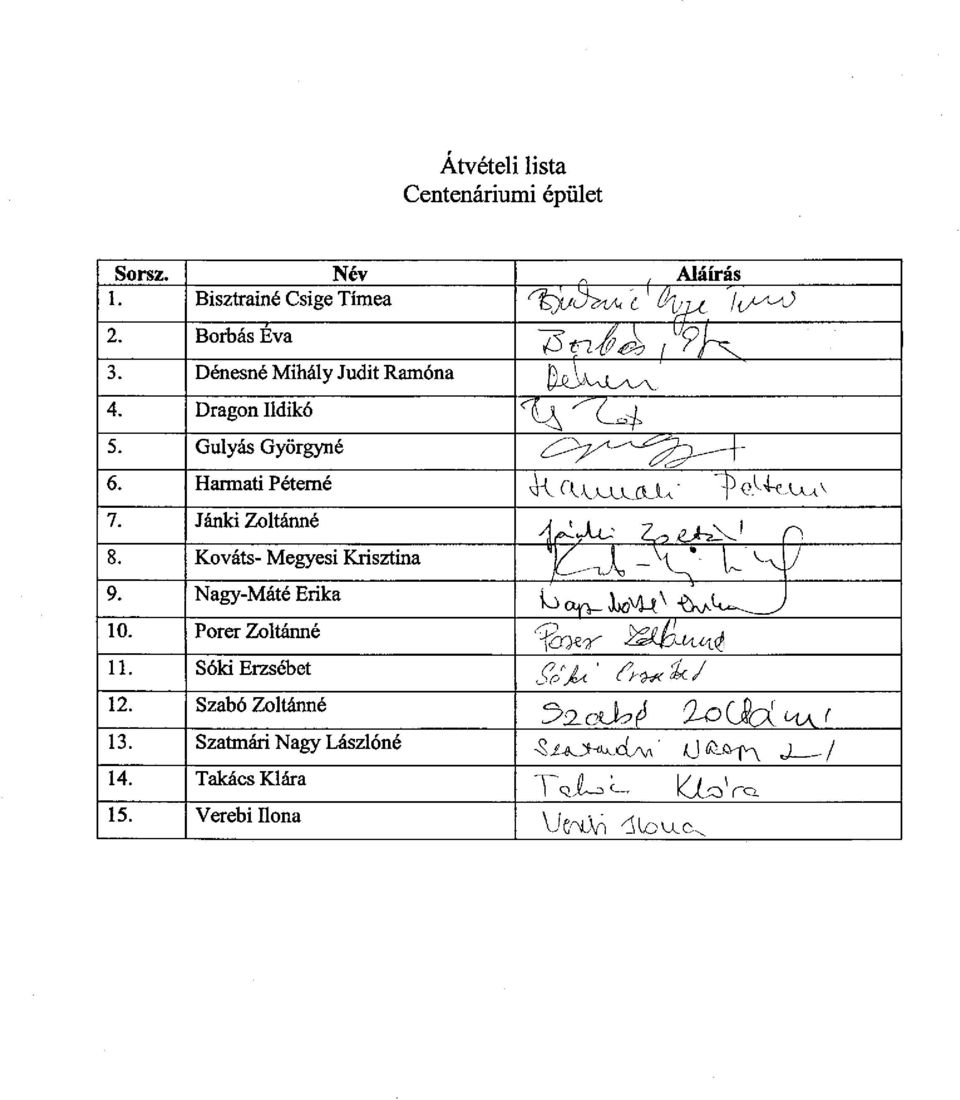 Átvételi lista
Centenáriumi épület
Sorsz. Név Aláírás
1. Bisztrainé Csige Tímea
2. Borbás Éva Borbás Éva
3. Dénesné Mihály Judit Ramóna
4. Dragon Ildikó
5. Gulyás Györgyné
6. Harmati Péterné Harmati Péterné
7. Jánki Zoltánné Jánki
8. Kováts- Megyesi Krisztina
9. Nagy-Máté Erika Nagy-Máté Erika
10. Porer Zoltánné Porer Zoltánné
11. Sóki Erzsébet Sóki Erzsébet
12. Szabó Zoltánné Szabó Zoltánné
13. Szatmári Nagy Lászlóné Szatmári Nagy L
14. Takács Klára Klára
15. Verebi Ilona Verebi Ilona